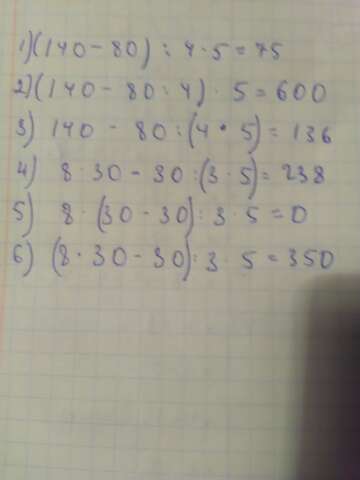 1) (140 - 80) : 4 · 5 = 75
2) (140 - 80 : 4) · 5 = 600
3) 140 - 80 : (4 · 5) = 136
4) 8 · 30 - 30 : (3 · 5) = 238
5) 8 · (30 - 30) : 3 · 5 = 0
6) (8 · 30 - 30) : 3 · 5 = 350